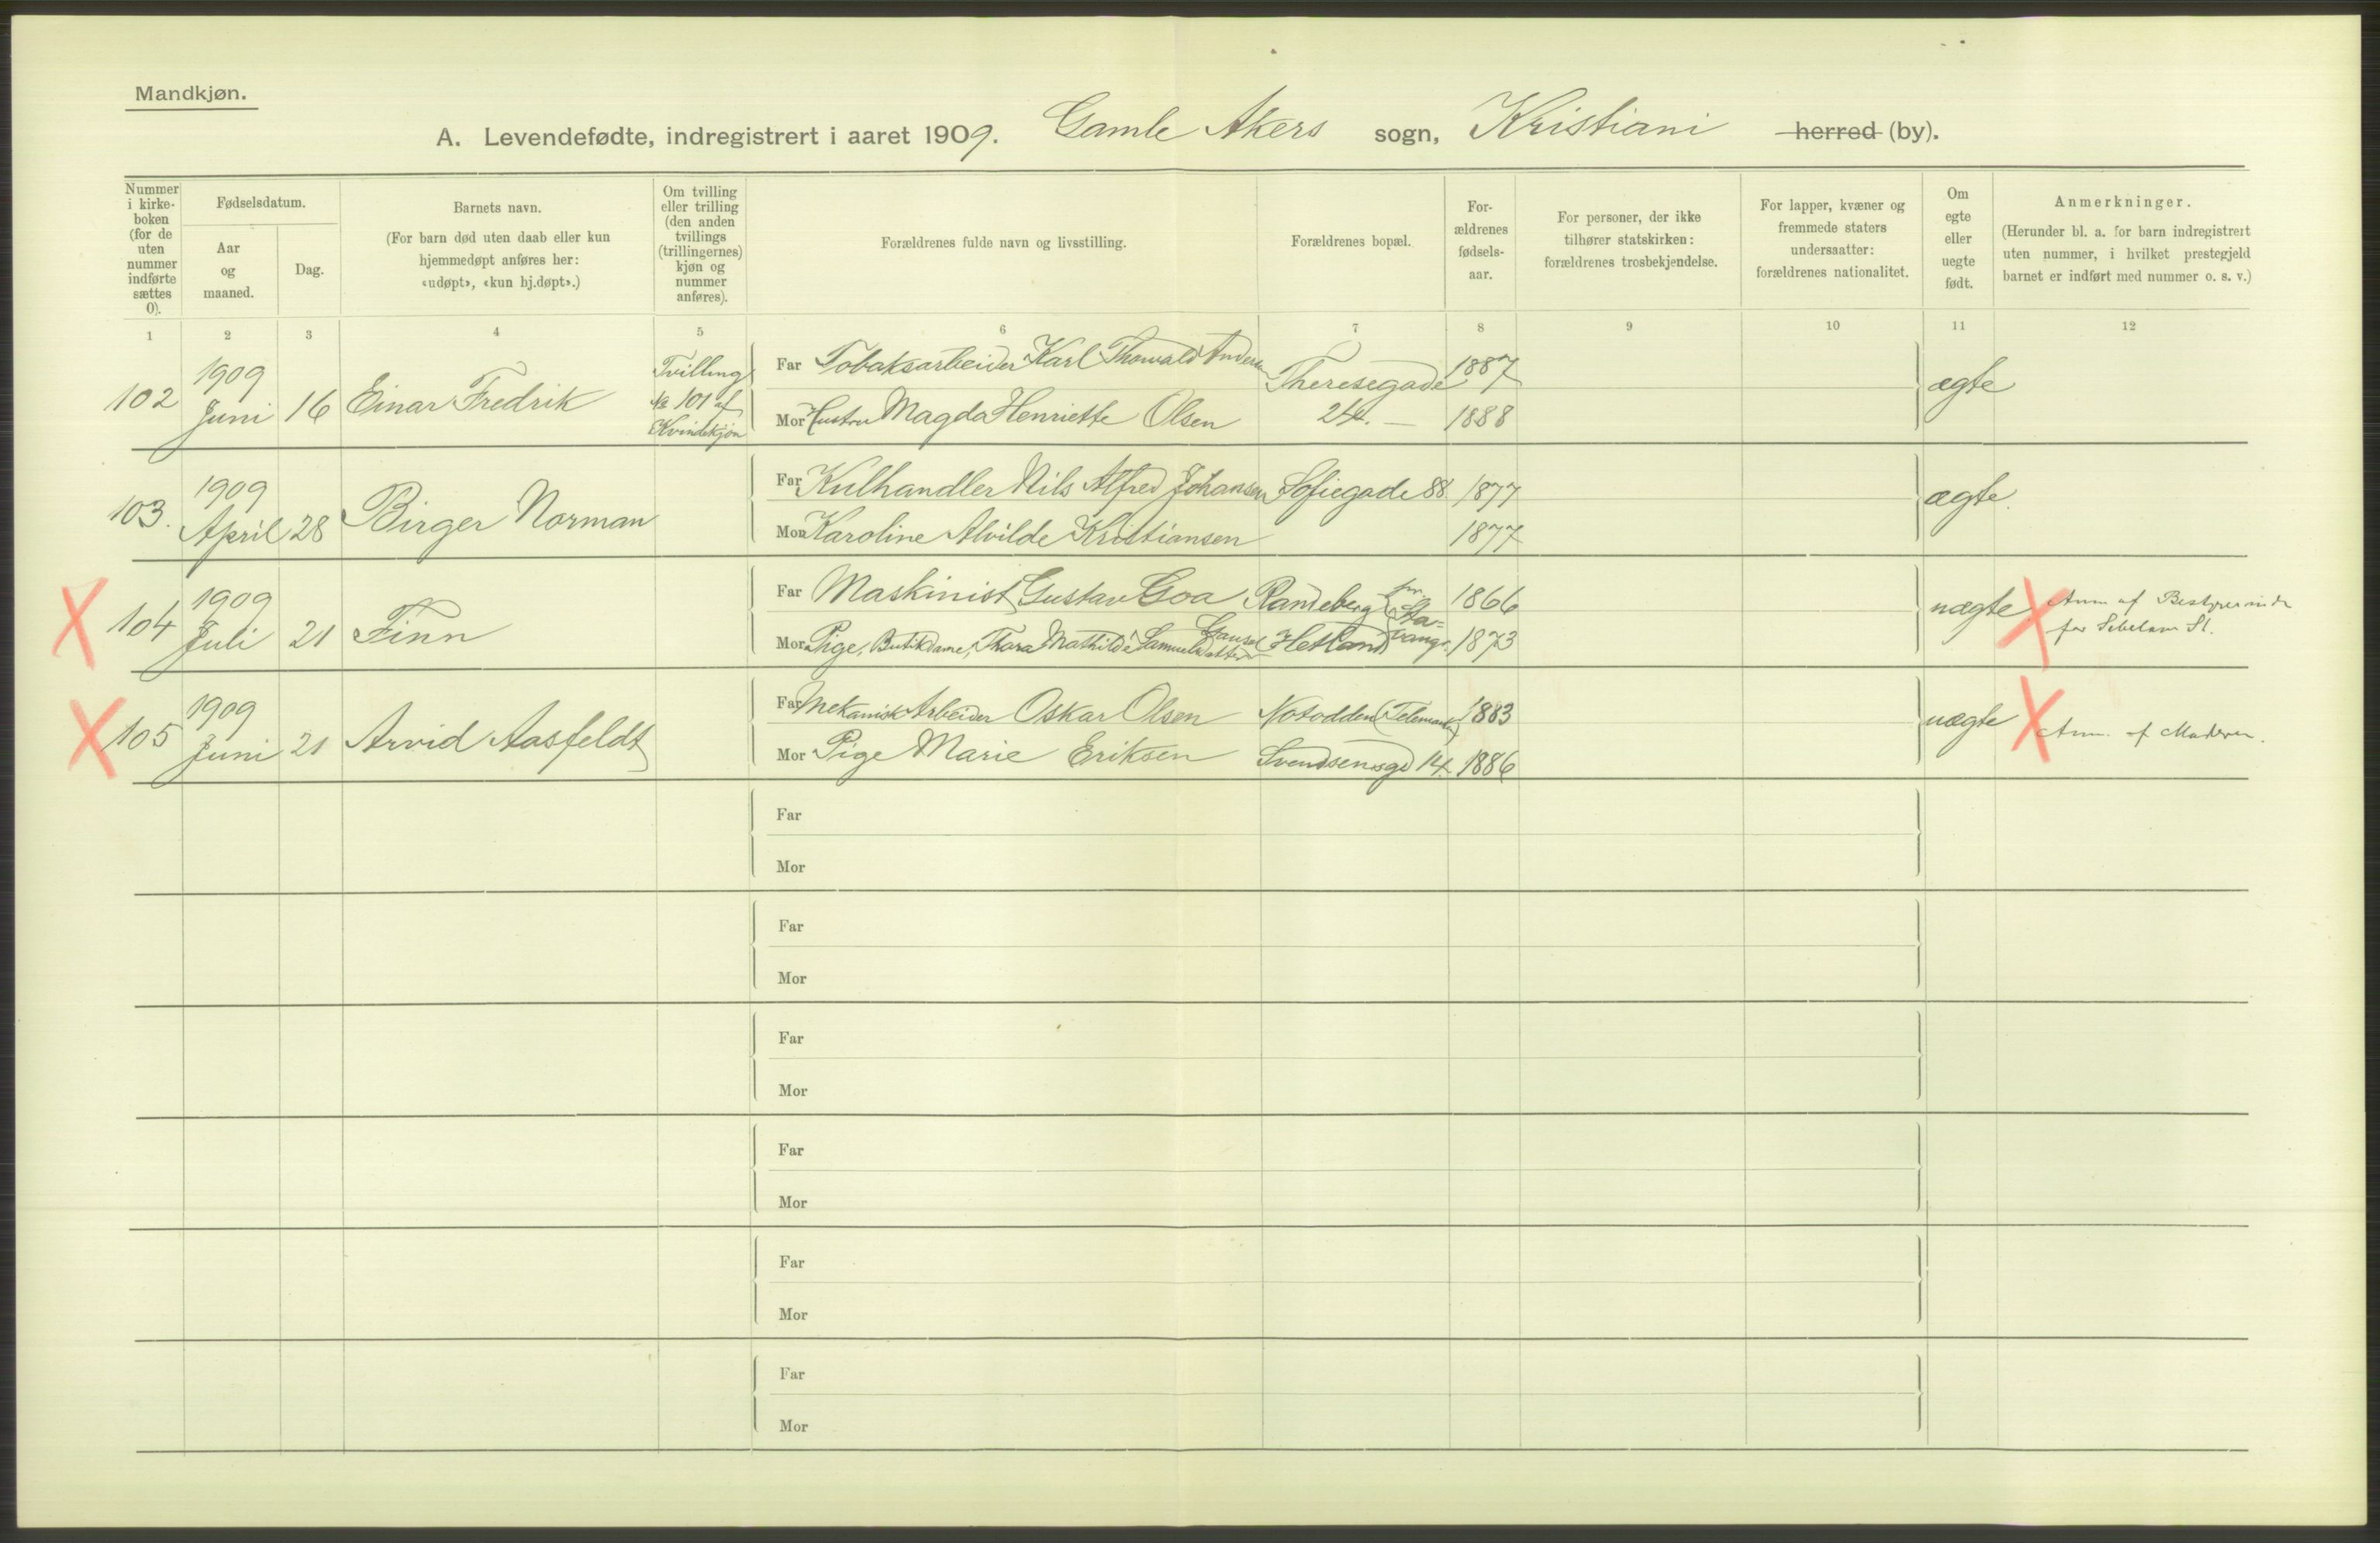 Mandkjøn.
A. Levendefødte, indregistrert i aaret 1909. Gamle Akers sogn, Kristiani herred (by).
Nummer i kirke-boken (for de uten nummer indførte sættes 0).
Fødselsdatum.
Aar og maaned.
Dag.
Barnets navn.
(For barn død uten daab eller kun hjemmedøpt anføres her: «udøpt», «kun hj.døpt».)
Om tvilling eller trilling (den anden tvillings (trillingernes) kjøn og nummer anføres).
Forældrenes fulde navn og livsstilling.
Forældrenes bopæl.
For-ældrenes fødsels-aar.
For personer, der ikke tilhører statskirken: forældrenes trosbekjendelse.
For lapper, kvæner og fremmede staters undersaatter: forældrenes nationalitet.
Om egte eller uegte født.
Anmerkninger.
(Herunder bl. a. for barn indregistrert uten nummer, i hvilket prestegjeld barnet er indført med nummer o. s. v.)
1 2 3 4 5 6 7 8 9 10 11 12
102 1909 Juni 16 Einar Fredrik Tvilling No 101 af Kvindekjøn
Far Tobaksarbeider Karl Thorvald Andersen Theresegade 1887 ægte
Mor Hustru Magda Henriette Olsen 24. 1888
103. 1909 April 28 Birger Norman
Far Kulhandler Nils Alfred Johansen Sofiegade 88 1877 ægte.
Mor Karoline Alvilde Kristiansen 1877
X 104 1909 Juli 21 Finn
Far Maskinist, Gustav Goa Randeberg pr. Sta- 1866 uægte X Anm af Bestyrerinde
Mor Pige, Butikdame, Thora Mathilde Samuelsdatter Gausel (Hetland) vanger 1873 for Sebelow St.
X 105 1909 Juni 21 Arvid Aasfeldt
Far Mekanisk Arbeider Oskar Olsen Notodden (Telemarken) 1883 uægte X Anm. af Moderen.
Mor Pige Marie Eriksen Svendsensgd 14 1886
Far
Mor
Far
Mor
Far
Mor
Far
Mor
Far
Mor
Far
Mor